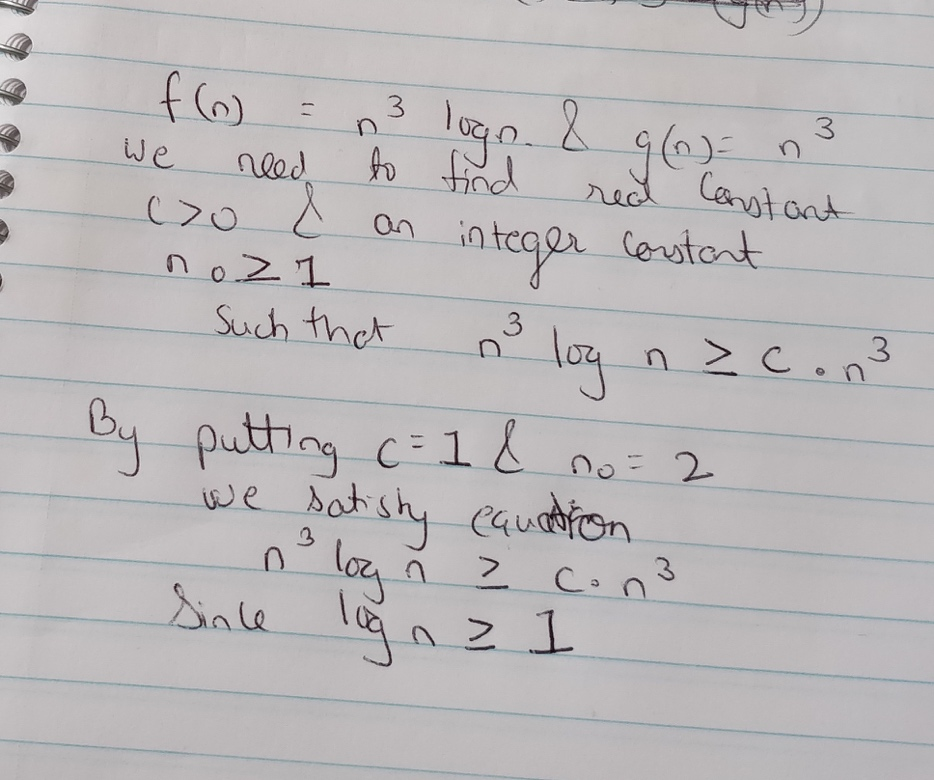 f(n) = n³ log n. & g(n) = n³
we need to find real constant
c>0 & an integer constant
n₀ ≥ 1
Such that n³ log n ≥ c . n³
By putting c=1 & n₀ = 2
we satisfy equation
n³ log n ≥ c . n³
Since log n ≥ 1